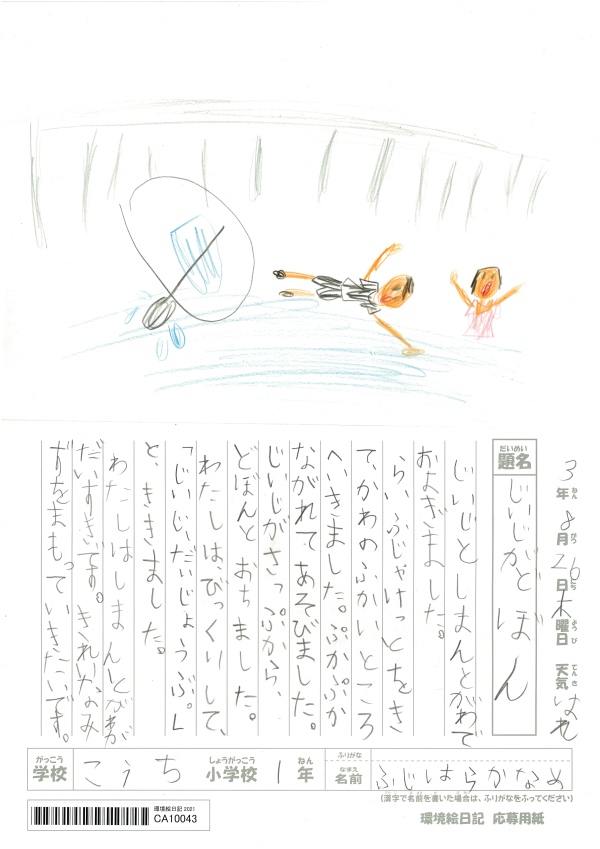 3年8月26日木曜日 天気はれ
ねん がつ にち ようび てんき
だいめい
題名 じいじがどぼん
じいじとしまんとがわで
およぎました。
らいふじゃけっとをき
て、かわのふかいところ
へいきました。ぷかぷか
ながれてあそびました。
じいじがさっぷから、
どぼんとおちました。
わたしは、びっくりして、
「じいじ、だいじょうぶ。」
と、ききました。
わたしはしまんとがわが
だいすきです。きれいなみ
ずをまもっていきたいです。
がっこう しょうがっこう ねん ふりがな
学校 こうち 小学校 1年 なまえ 名前 ふじはらかなめ
(漢字で名前を書いた場合は、ふりがなをふってください)
環境絵日記 2021
CA10043
環境絵日記 応募用紙